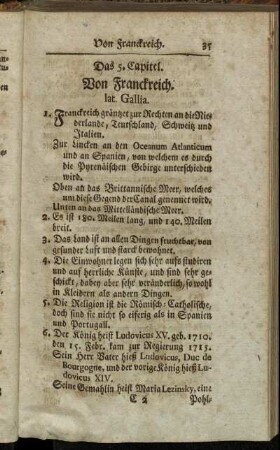 Von Franckreich. 35
Das 5. Capitel.
Von Franckreich.
lat. Gallia.
1. Franckreich gräntzet zur Rechten an die Nie-
derlande, Teutschland, Schweitz und
Italien.
Zur Lincken an den Oceanum Atlanticum
und an Spanien, von welchem es durch
die Pyrenäischen Gebirge unterschieden
wird.
Oben an das Brittannische Meer, welches
um diese Gegend der Canal genennet wird.
Unten an das Mittelländische Meer.
2. Es ist 180. Meilen lang, und 140. Meilen
breit.
3. Das Land ist an allen Dingen fruchtbar, von
gesunder Luft und starck bewohnet.
4. Die Einwohner legen sich sehr aufs studiren
und auf herrliche Künste, und sind sehr ge-
schickt, dabey aber sehr veränderlich, sowohl
in Kleidern als andern Dingen.
5. Die Religion ist die Römisch-Catholische,
doch sind sie nicht so eiferig als in Spanien
und Portugall.
6. Der König heist Ludovicus XV. geb. 1710.
den 15. Febr. kam zur Regierung 1715.
Sein Herr Vater hieß Ludovicus, Duc de
Bourgogne, und der vorige König hieß Lu-
dovicus XIV.
Seine Gemahlin heist Maria Lezinsky, eine
C 2 Pohl-